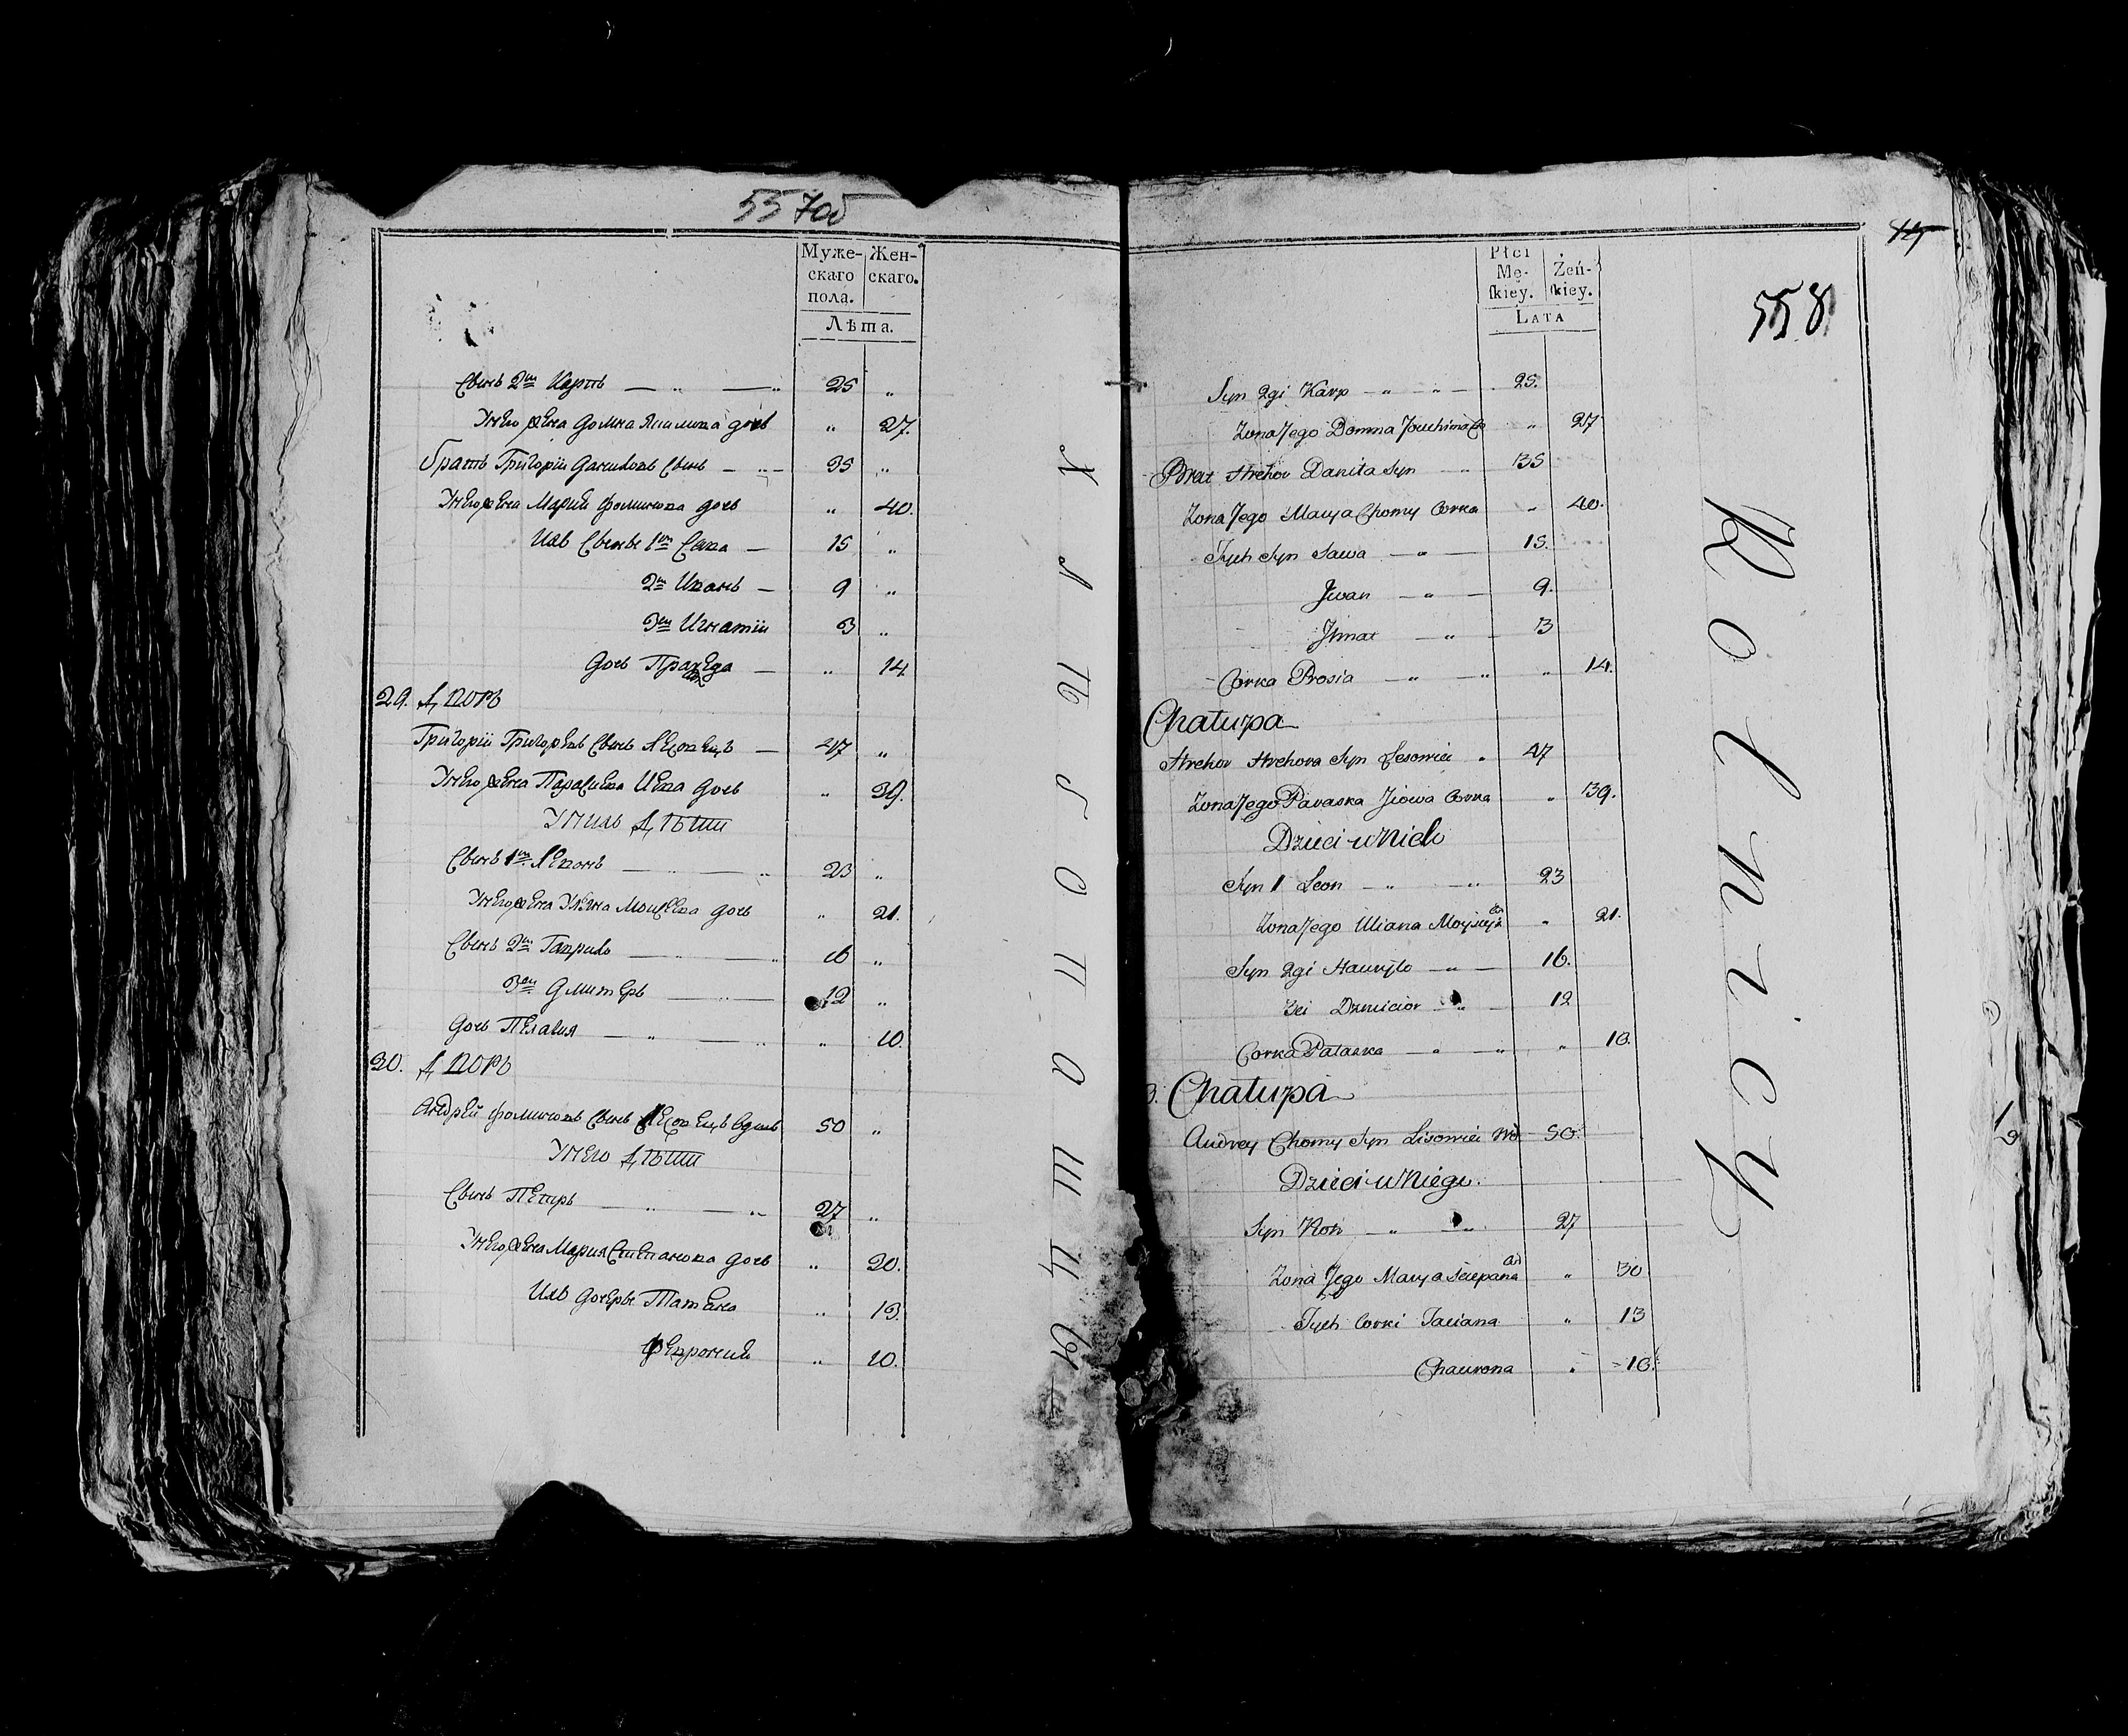 557об
Муже- Жен-
скаго скаго.
пола.
Лѣта.
Сынъ 2й Карпъ — „ — „ 25 „
У него жена Домна Якимова дочь „ 27.
Братъ Григорій Даниловъ сынъ — „ — 35 „
У него жена Марья Фоминова дочь „ 40.
Ихъ сыновья 1й Сава — 15 „
2й Иванъ — 9 „
3й Игнатій 3 „
Дочь — „ 14
29. Дворъ
Григорій Григорьевъ сынъ Лесовецъ — 47 „
У него жена Парасцева Иева дочь „ 39.
У нихъ Дѣти
Сынъ 1й Левонъ — „ — „ 23 „
У него жена Ульяна Мойсеева дочь „ 21.
Сынъ 2й Гаврило — „ — „ 16 „
3й Дмитеръ — „ — 12 „
Дочь Пелагия — „ — „ „ 10.
30. Дворъ
Андрей Фоминовъ сынъ Лесовецъ вдовъ 50 „
У него Дѣти
Сынъ Петръ — „ — „ 27 „
У него жена Мария Степанова дочь „ 20.
Ихъ дочери Татьяна „ 13.
Февронья „ 10.
Płci
Mę- Żeń-
skiey. skiey.
LATA
558
Syn 2gi Karp — „ „ — 25.
Zona Jego Domna Jouchima Co „ 27
Brat Hrehor Daniła Syn „ 35
Zona Jego Marya Chomy Corka „ 40.
Tych Syn Sawa — „ — 15.
Jwan — „ — 9.
Jhnat — „ — 3
Corka Prosia — „ — „ „ 14.
Chałupa
Hrehor Hrehora Syn Lesowiec „ 47
Zona Jego Paraska Jiowa Corka „ 39.
Dzieci u Nich
Syn 1 Leon — „ — „ 23
Zona Jego Uliana Moyseja Co „ 21.
Syn 2gi Hauryło — „ — 16.
3ci Dzmicior — „ — 12
Corka Pałaska — „ — „ „ 10.
Chałupa
Andrey Chomy Syn Lisowiec Wd 50.
Dzieci u Niego.
Syn Piotr — „ — „ 27
Zona Jego Marya Sciepana Co „ 30
Tych Corki Taciana „ 13
Chaurona „ 10.
Kolnicy